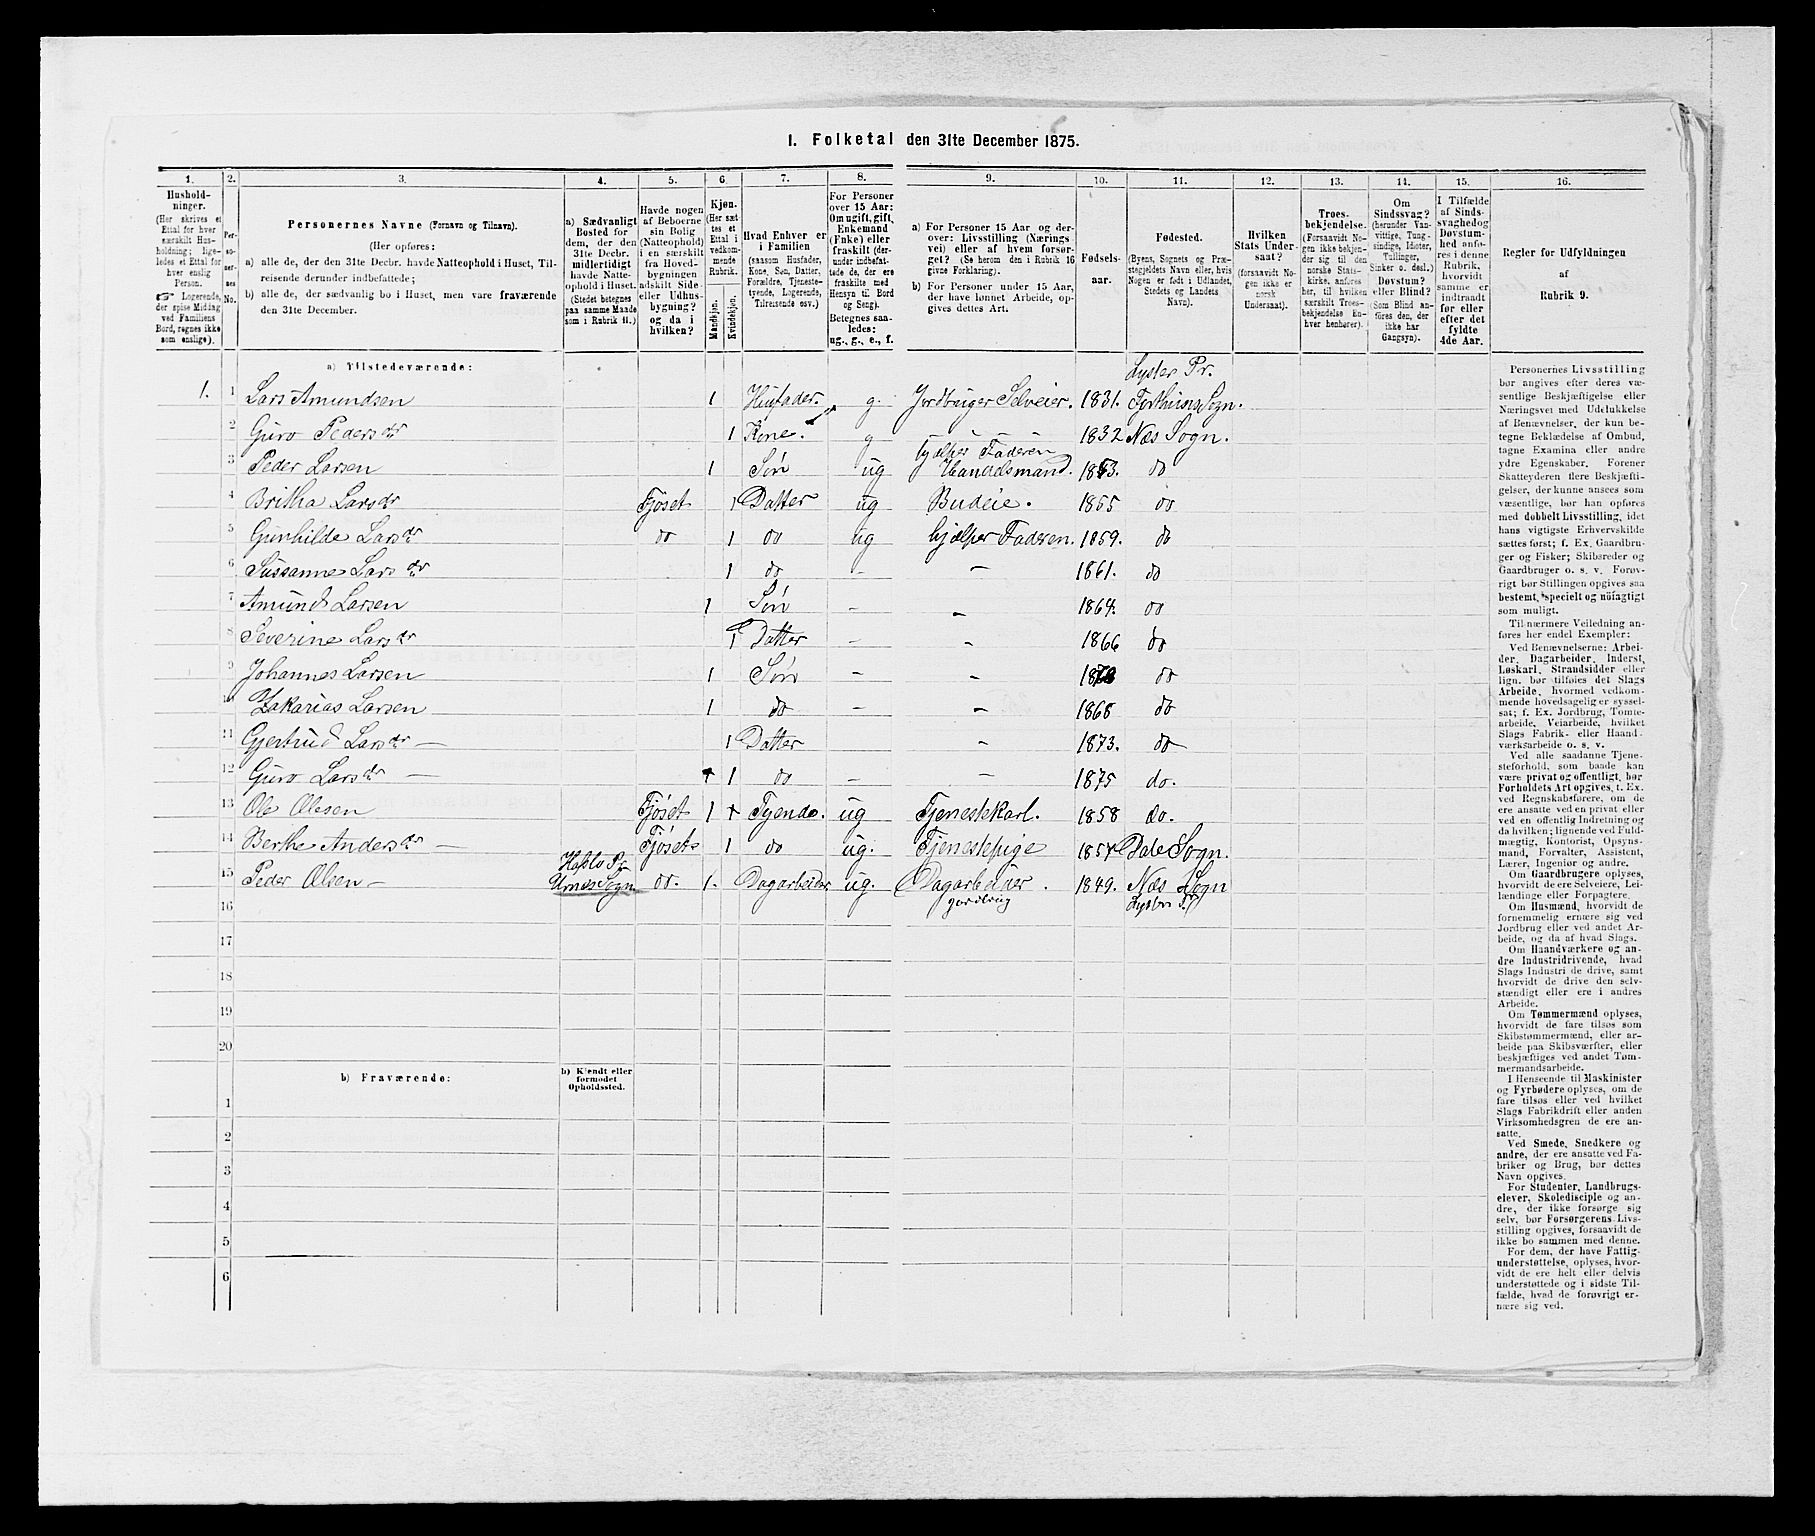 I. Folketal den 31te December 1875.
1. 2. 3. 4. 5. 6. 7. 8. 9. 10. 11. 12. 13. 14. 15. 16.
Hushold-
ninger.
(Her skrives et
Ettal for hver
særskilt Hus-
holdning; lige-
ledes et Ettal for
hver enslig
Person.
☞ Logerende,
der spise Middag
ved Familiens
Bord, regnes ikke
som enslige).
Per-
so-
ner-
nes
No.
Personernes Navne (Fornavn og Tilnavn).
(Her opføres:
a) alle de, der den 31te Decbr. havde Natteophold i Huset, Til-
reisende derunder indbefattede;
b) alle de, der sædvanlig bo i Huset, men vare fraværende
den 31te December.
a) Sædvanligt
Bosted for
dem, der den
31te Decbr.
midlertidigt
havde Natte-
ophold i Huset.
(Stedet betegnes
paa samme Maade
som i Rubrik 11.)
Havde nogen
af Beboerne
sin Bolig
(Natteophold)
i en særskilt
fra Hoved-
bygningen
adskilt Side-
eller Udhus-
bygning?
og da i
hvilken?
Kjøn.
(Her sæt
tes et
Ettal i
vedkom-
mende
Rubrik.
Mandkjøn.
Kvindekjøn.
Hvad Enhver er
i Familien
(saasom Husfader,
Kone, Søn, Datter,
Forældre, Tjeneste-
tyende, Logerende,
Tilreisende osv.)
For Personer
over 15 Aar:
Om ugift, gift,
Enkemand
(Enke) eller
fraskilt (der-
under indbefat-
tede de, der ere
fraskilte med
Hensyn til Bord
og Seng).
Betegnes saa-
ledes:
ug., g., e., f.
a) For Personer 15 Aar og der-
over: Livsstilling (Nærings-
vei) eller af hvem forsør-
get? (Se herom den i Rubrik 16
givne Forklaring).
b) For Personer under 15 Aar,
der have lønnet Arbeide, op-
gives dettes Art.
Fødsels-
aar.
Fødested.
(Byens, Sognets og Præ-
stegjeldets Navn eller, hvis
Nogen er født i Udlandet,
Stedets og Landets
Navn).
Hvilken
Stats Under-
saat?
(forsaavidt No-
gen ikke er
norsk
Undersaat).
Troes-
bekjendelse.
(Forsaavidt No-
gen ikke bekjen-
der sig til den
norske Stats-
kirke, anføres
her, til hvilken
særskilt Troes-
bekjendelse En-
hver henhører).
Om
Sindssvag?
(herunder Van-
vittige, Tung-
sindige, Idioter,
Tullinger,
Sinker o. desl.)
Døvstum?
eller Blind?
(Som Blind an-
føres den, der
ikke har
Gangsyn).
I Tilfælde
af Sinds-
svaghed og
Døvstum-
hed anfø-
res i denne
Rubrik,
hvorvidt
samme er
indtraadt
før eller
efter det
fyldte
4de Aar.
Regler for Udfyldningen
af
Rubrik 9.
a) Tilstedeværende:
Lyster Pr.
1. 1 Lars Amundsen 1 Husfader. g. Jordbruger Selveier. 1831. Forthuns Sogn.
2 Guro Pedersdr 1 Kone. g 1832 Næs Sogn.
hjælper Faderen
3 Peder Larsen 1 Søn ug Handelsmand. 1853. do
4 Britha Larsdr Fjøset 1 Datter ug Budeie. 1855 do
5 Gunhilde Larsdr do 1 do ug hjælper Faderen. 1859. do
6 Sussanne Larsdr 1 do - - 1861. do
7 Amund Larsen 1 Søn - - 1864. do
8 Severine Larsdr 1 Datter - - 1866 do
9 Johannes Larsen 1 Søn - - do
10 Zakarias Larsen 1 do - - 1868 do
11 Gjertrud Larsdr - 1 Datter - 1873. do
12 Guro Larsdr - 1 do - - 1875 do.
13 Ole Olesen Fjøset 1 Tyende. ug Tjenestekarl. 1858 do.
14 Berthe Andersdr Fjøset 1 do ug. Tjenestepige 1854 Dale Sogn.
Hafslo Pr
15 Peder Olsen - Urnes Sogn do. 1. Dagarbeider ug. Dagarbeider. 1849. Næs Sogn
Jordbrug Lyster Pr
16
17
18
19
20
b) Fraværende:
b) Kjendt eller
formodet
Opholdssted.
1
2
3
4
5
6
Personernes Livsstilling
bør angives efter deres væ-
sentlige Beskjæftigelse eller
Næringsvei med Udelukkelse
af Benævnelser, der kun be-
tegne Beklædelse af Ombud,
tagne Examina eller andre
ydre Egenskaber. Forener
Skatteyderen flere Beskjæfti-
gelser, der kunne ansees som
væsentlige, bør han opføres
med dobbelt Livsstilling, idet
hans vigtigste Erhvervskilde
sættes først; f. Ex. Gaardbru-
ger og Fisker; Skibsreder og
Gaardbruger o. s. v. Forøv-
rigt bør Stillingen opgives saa
bestemt, specielt og nöiagtigt
som muligt.
Til nærmere Veiledning an-
føres her endel Exempler:
Ved Benævnelserne: Arbei-
der, Dagarbeider, Inderst,
Løskarl, Strandsidder eller
lign. bør tilføies det Slags
Arbeide, hvormed vedkom-
mende hovedsagelig er syssel-
sat; f. Ex. Jordbrug, Tømte-
arbeide, Veiarbeide, hvilket
Slags Fabrik- eller Haand-
værksarbeide o. s. v.
Ved alle saadanne Tjene-
steforhold, som baade kan
være privat og offentligt, bør
Forholdets Art opgives, t. Ex.
ved Regnskabsførere, om de
ere ansatte ved en privat eller
ved en offentlig Indretning og
da hvilken; lignende ved Fuld-
mægtig, Kontorist, Opsyns-
mand, Forvalter, Assistent,
Lærer, Ingeniør og andre.
Om Gaardbrugere oplyses,
hvorvidt de ere Selveiere, Lei-
lændinge eller Forpagtere.
Om Husmænd, hvorvidt de
fornemmelig ernære sig ved
Jordbrug eller ved andet Ar-
beide, og da af hvad Slags.
Om Haandværkere og an-
dre Industridrivende, hvad
Slags Industri de drive, samt
hvorvidt de drive den selv-
stændigt eller ere i andres
Arbeide.
Om Tømmermænd oplyses,
hvorvidt de fare tilsøs som
Skibstømmermænd, eller ar-
beide paa Skibsværfter, eller
beskjæftiges ved andet Tøm-
mermandsarbeide.
I Henseende til Maskinister
og Fyrbødere oplyses, om de
fare tilsøs eller ved hvilket
Slags Fabrikdrift eller anden
Virksomhedsgren de ere an-
satte.
Ved Smede, Snedkere og
andre, der ere ansatte ved Fa-
briker og Brug, bør dettes
Navn opgives.
For Studenter, Landbrugs-
elever, Skoledisciple og an-
dre, der ikke forsørge sig
selv, bør Forsørgerens Livs-
stilling opgives, forsaavidt de
ikke bo sammen med denne.
For dem, der have Fattig-
understøttelse, oplyses, hvor-
vidt de ere helt eller delvis
understøttede og i sidste Til-
fælde, hvad de forøvrigt er-
nære sig ved.